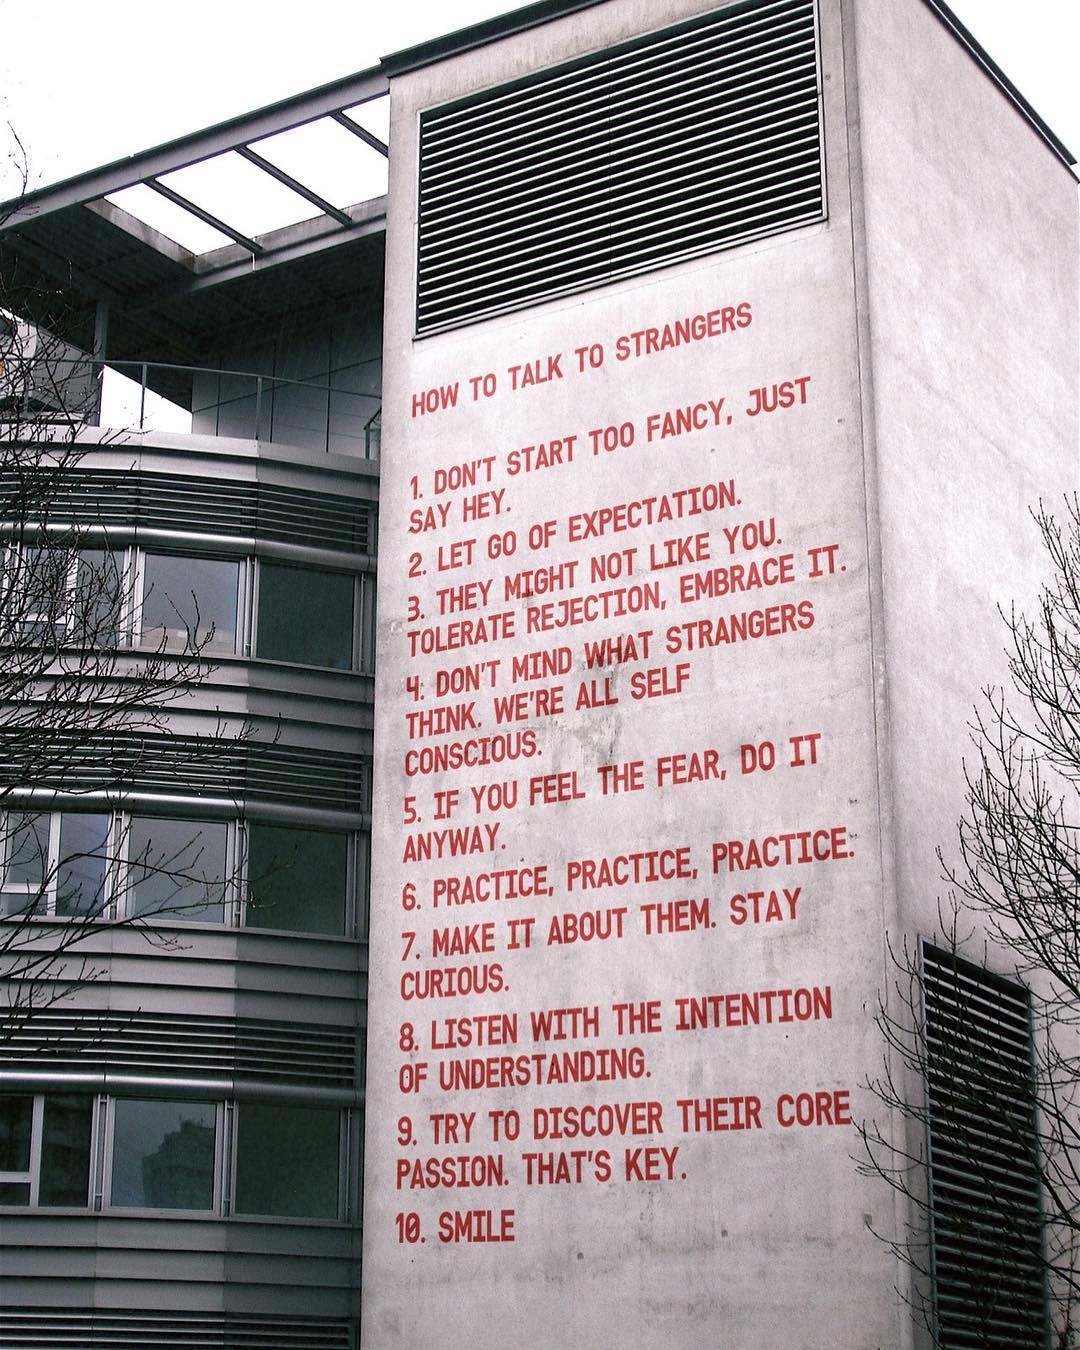 HOW TO TALK TO STRANGERS
1. DON'T START TOO FANCY, JUST
SAY HEY.
2. LET GO OF EXPECTATION.
3. THEY MIGHT NOT LIKE YOU.
TOLERATE REJECTION, EMBRACE IT.
4. DON'T MIND WHAT STRANGERS
THINK. WE'RE ALL SELF
CONSCIOUS.
5. IF YOU FEEL THE FEAR, DO IT
ANYWAY.
6. PRACTICE, PRACTICE, PRACTICE.
7. MAKE IT ABOUT THEM. STAY
CURIOUS.
8. LISTEN WITH THE INTENTION
OF UNDERSTANDING.
9. TRY TO DISCOVER THEIR CORE
PASSION. THAT'S KEY.
10. SMILE